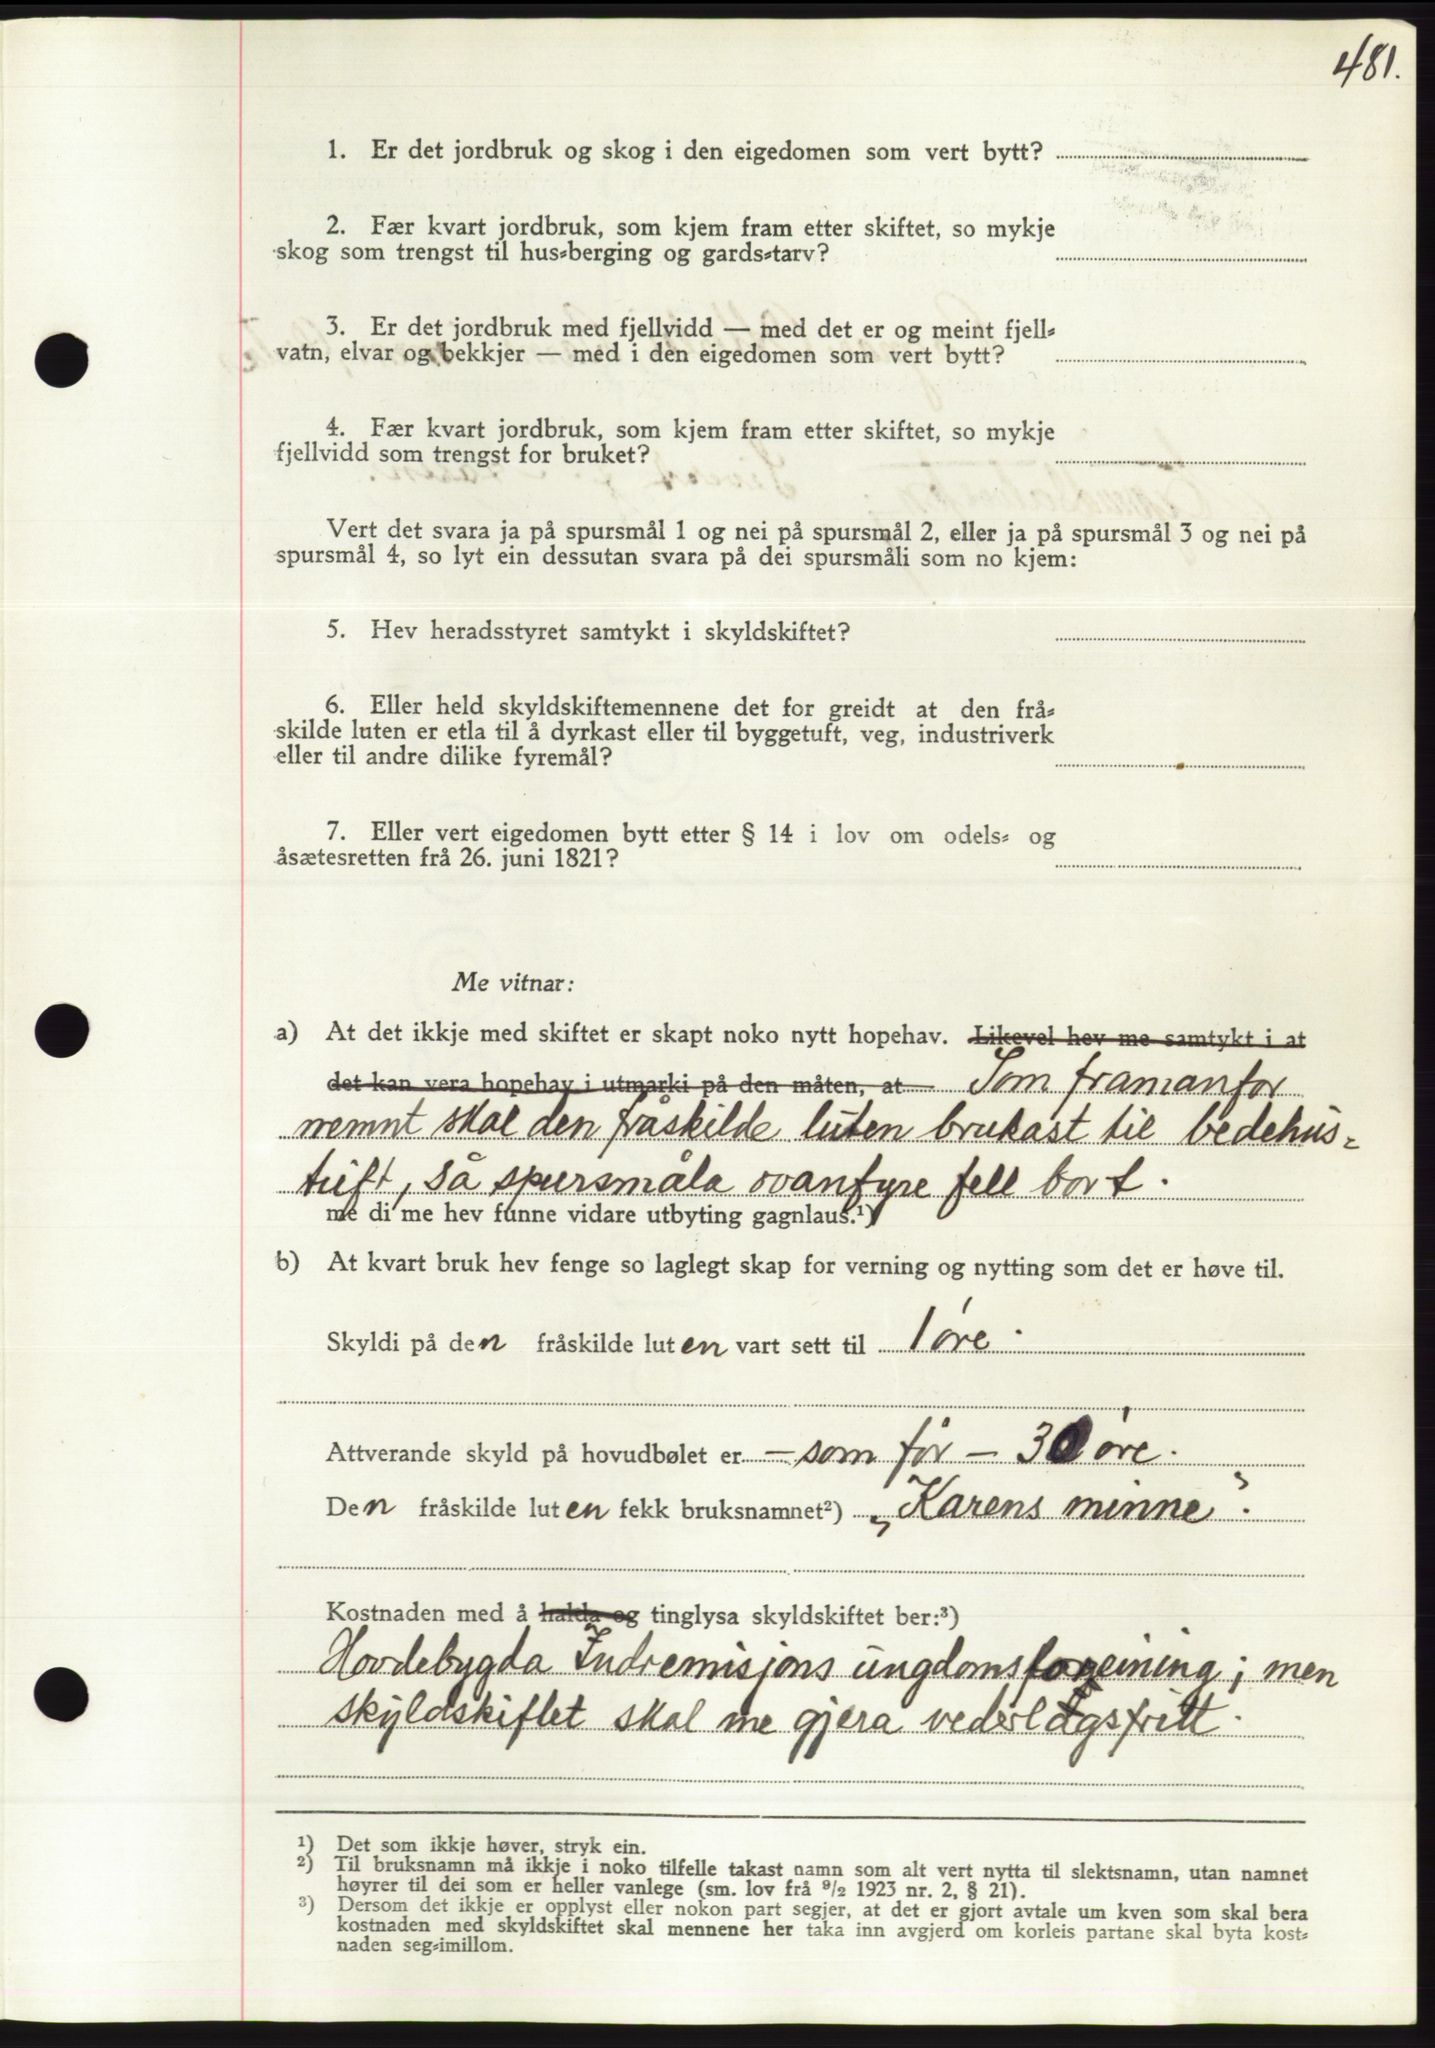 481.
1. Er det jordbruk og skog i den eigedomen som vert bytt?
2. Fær kvart jordbruk, som kjem fram etter skiftet, so mykje
skog som trengst til hus=berging og gards=tarv?
3. Er det jordbruk med fjellvidd — med det er og meint fjell=
vatn, elvar og bekkjer — med i den eigedomen som vert bytt?
4. Fær kvart jordbruk, som kjem fram etter skiftet, so mykje
fjellvidd som trengst for bruket?
Vert det svara ja på spursmål 1 og nei på spursmål 2, eller ja på spursmål 3 og nei på
spursmål 4, so lyt ein dessutan svara på dei spursmåli som no kjem:
5. Hev heradsstyret samtykt i skyldskiftet?
6. Eller held skyldskiftemennene det for greidt at den frå=
skilde luten er etla til å dyrkast eller til byggetuft, veg, industriverk
eller til andre dilike fyremål?
7. Eller vert eigedomen bytt etter § 14 i lov om odels= og
åsætesretten frå 26. juni 1821?
Me vitnar:
a) At det ikkje med skiftet er skapt noko nytt hopehav. Likevel hev me samtykt i at
det kan vera hopehav i utmarki på den måten, at Som framanfor
nemnt skal den fråskilde luten brukast til bedehus=
tuft, så spursmåla ovanfyre fell bort.
me di me hev funne vidare utbyting gagnlaus.¹)
b) At kvart bruk hev fenge so laglegt skap for verning og nytting som det er høve til.
Skyldi på den fråskilde luten vart sett til 1 øre.
Attverande skyld på hovudbølet er — som før — 30 øre.
Den fråskilde luten fekk bruksnamnet²) „Karens minne".
Kostnaden med å halda og tinglysa skyldskiftet ber:³)
Hovdebygda Indremisjons ungdomsforeining; men
skyldskiftet skal me gjera vederlagsfritt.
¹) Det som ikkje høver, stryk ein.
²) Til bruksnamn må ikkje i noko tilfelle takast namn som alt vert nytta til slektsnamn, utan namnet
høyrer til dei som er heller vanlege (sm. lov frå ⁹/₂ 1923 nr. 2, § 21).
³) Dersom det ikkje er opplyst eller nokon part segjer, at det er gjort avtale um kven som skal bera
kostnaden med skyldskiftet skal mennene her taka inn avgjerd om korleis partane skal byta kost=
naden seg=imillom.